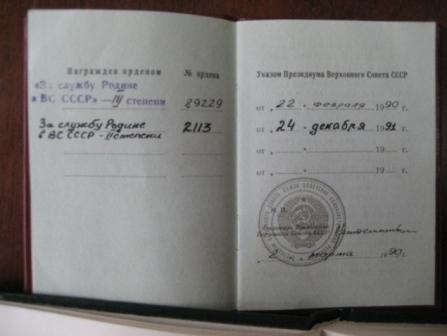 Награжден орденом № ордена
«За службу Родине
в ВС СССР» — III степени 29229
За службу Родине
в ВС СССР - II степени 2113
Указом Президиума Верховного Совета СССР
от „ 22 „ февраля 1990 г.
от „ 24 „ декабря 1991 г.
от „ „ 19 г.
от „ „ 19 г.
М. П.
Секретарь Президиума
Верховного Совета СССР
2 марта 1990 г.